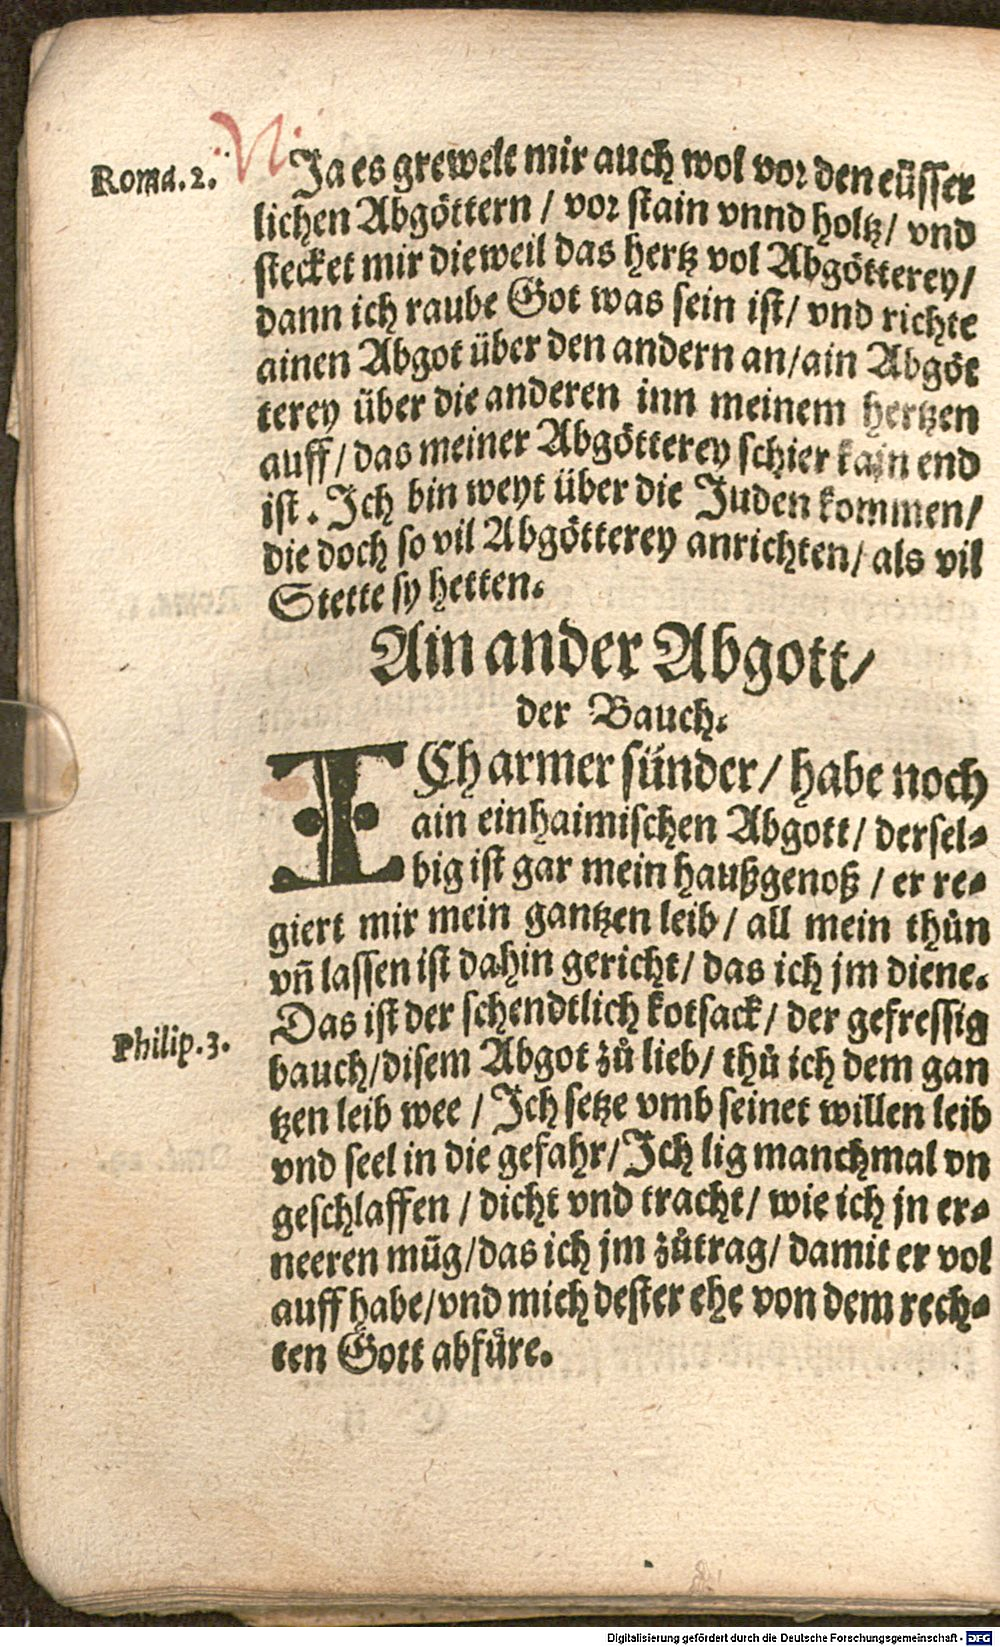 Roma. 2.
Ja es grewelt mir auch wol vor den eüsser
lichen Abgöttern / vor stain vnnd holtz / vnd
stecket mir die weil das hertz vol Abgötterey /
dann ich raube Got was sein ist / vnd richte
ainen Abgot über den andern an / ain Abgöt
terey über die anderen inn meinem hertzen
auff / das meiner Abgötterey schier kain end
ist. Ich bin weyt über die Juden kommen /
die doch so vil Abgötterey anrichten / als vil
Stette sy hetten.
Ain ander Abgott /
der Bauch.
ICh armer sünder / habe noch
ain einhaimischen Abgott / dersel-
big ist gar mein haußgenoß / er re-
giert mir mein gantzen leib / all mein thůn
vñ lassen ist dahin gericht / das ich jm diene.
Das ist der schendtlich kotsack / der gefressig
Philip. 3.
bauch / disem Abgot zů lieb / thů ich dem gan
tzen leib wee / Ich setze vmb seinet willen leib
vnd seel in die gefahr / Ich lig manchmal vn
geschlaffen / dicht vnd tracht / wie ich jn er-
neeren müg / das ich jm zůtrag / damit er vol
auff habe / vnd mich dester ehe von dem rech-
ten Gott abfüre.
Digitalisierung gefördert durch die Deutsche Forschungsgemeinschaft - DFG